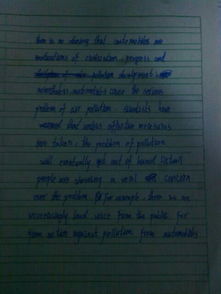 there is no denying that automobiles are
indications of civilization, progress and
pollution development
nevertheless automobiles cause the serious
problem of air pollution. Scientists have
that unless effective measures
are taken, the problem of pollution
will eventually get out of human
people are showing a great concern
over the problem. for example, there is an
increasingly loud voice from the public for
action against pollution from automobiles